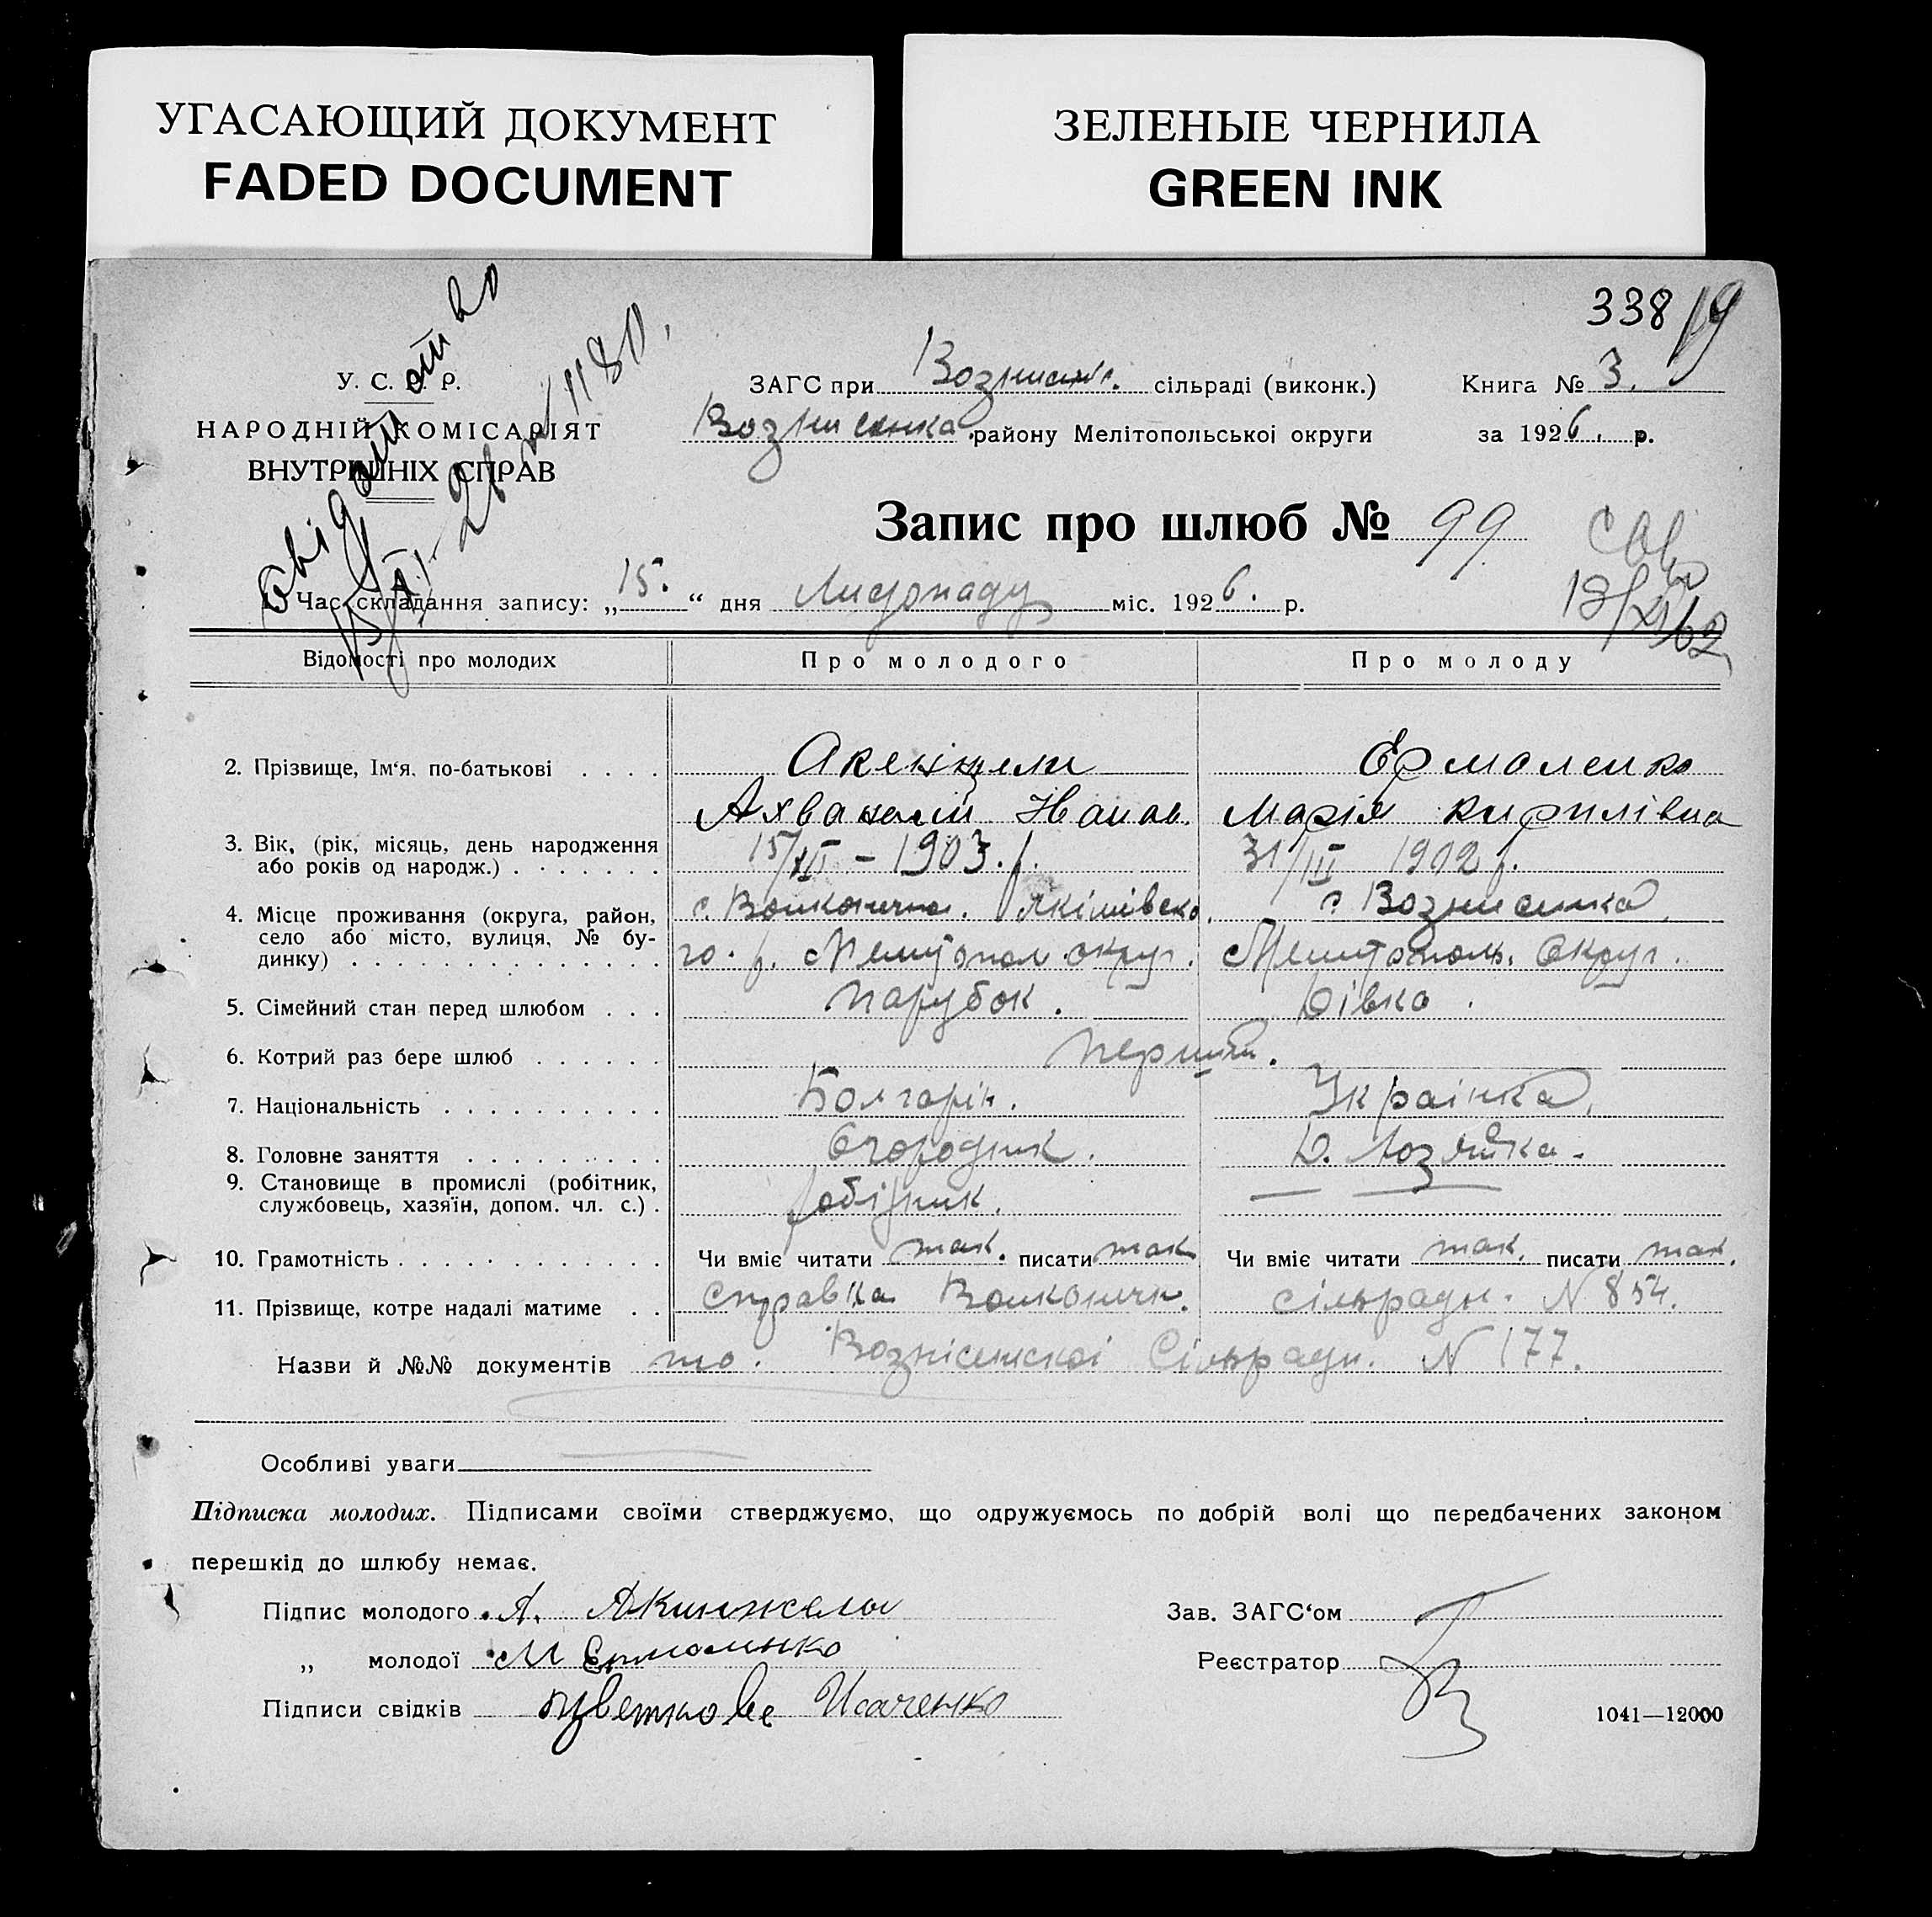 УГАСАЮЩИЙ ДОКУМЕНТ
FADED DOCUMENT
ЗЕЛЕНЫЕ ЧЕРНИЛА
GREEN INK
338
У. С. Р. Р.
НАРОДНІЙ КОМІСАРІЯТ
ВНУТРІШНІХ СПРАВ
ЗАГС при сільраді (виконк.) Книга № 3.
району Мелітопольської округи за 1926. р.
Запис про шлюб № 99
1. Час складання запису: „15.“ дня Листопаду міс. 1926. р.
Відомості про молодих Про молодого Про молоду
2. Прізвище, Ім‘я, по-батькові Ермоленко
Іванов. Марія Кирилівна
3. Вік, (рік, місяць, день народження
або років од народж.) 1903. р. 31/III 1902 р.
4. Місце проживання (округа, район, с. Якімівсько
село або місто, вулиця, № бу-
динку) го. р. Мелітопол округ. Мелітополь. Округ.
5. Сімейний стан перед шлюбом Парубок. Дівка.
6. Котрий раз бере шлюб Перший.
7. Національність Болгарін. Украінка.
8. Головне заняття Огородник. Д. Хозяйка.
9. Становище в промислі (робітник,
службовець, хазяїн, допом. чл. с.) робітник. —
10. Грамотність Чи вміє читати так. писати так Чи вміє читати так. писати так.
11. Прізвище, котре надалі матиме Справка сільради. N 854.
Назви й №№ документів то. Вознісенскоі Сільради. N 177.
Особливі уваги
Підписка молодих. Підписами своїми стверджуємо, що одружуємось по добрій волі що передбачених законом
перешкід до шлюбу немає.
Підпис молодого А. Акинжелы Зав. ЗАГС‘ом
„ молодої М Ермоленко Реєстратор
Підписи свідків Исаченко
1041—12000